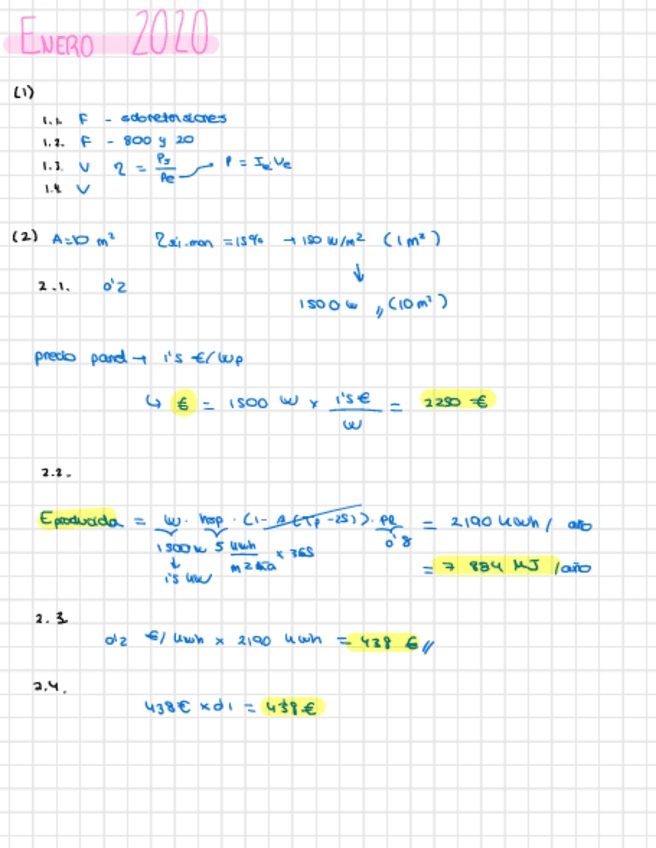 ENERO 2020
(1)
1.1. F - sobretensiones
1.2. F - 800 y 20
1.3. V η = Ps/Pe → P = Ie·Ve
1.4. V
(2) A=10 m² η si.mon = 15% → 150 W/m² (1m²)
↓
2.1. 0'2 1500 w // (10m²)
precio panel → 1'5 €/Wp
↳ € = 1500 W × 1'5€/W = 2250 €
2.2.
E producida = W · hsp · (1 - A(Tp -25)) · PR = 2190 kWh / año
1500w 5 kWh/m² día × 365 0'8
↓
1'5 kW = 7 884 MJ /año
2.3.
0'2 €/kWh × 2190 kWh = 438 € //
2.4.
438€ × 0'1 = 438€